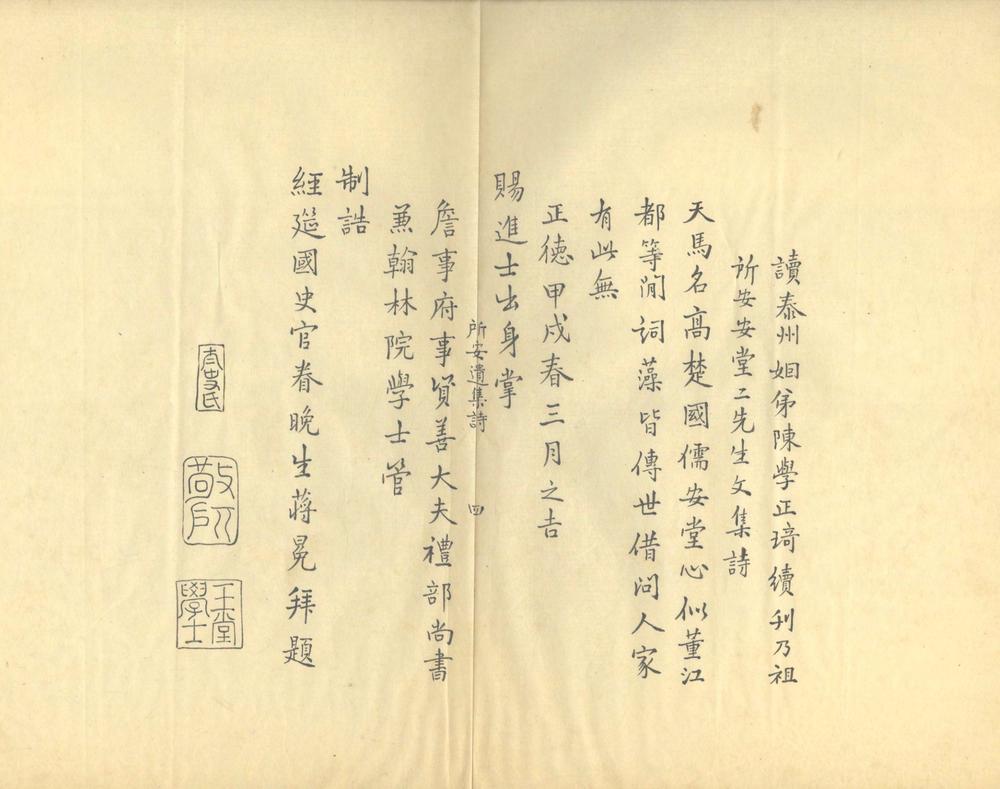 讀泰州姻弟陳學正琦續刋乃祖
所安安堂二先生文集詩
天馬名高楚國儒安堂心似董江
都等閒詞藻皆傳世借問人家
有此無
正德甲戌春三月之吉
賜進士出身掌
所安遺集詩 四
詹事府事資善大夫禮部尚書
兼翰林院學士管
制誥
經筵國史官眷晚生蔣冕拜題
敬所
玉堂學士